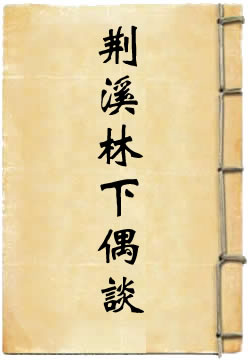 荆溪林下偶談